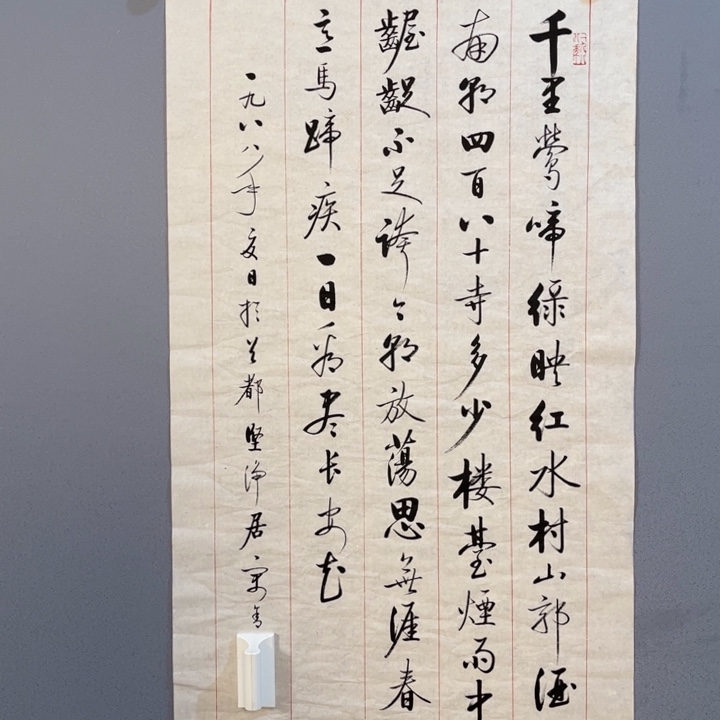 千里鶯啼綠映红水村山郭酒
南朝四百八十寺多少楼臺煙雨中
齷齪不足誇今朝放蕩思無涯春
意馬蹄疾一日看尽长安花
一九八八年夏日於首都堅净居